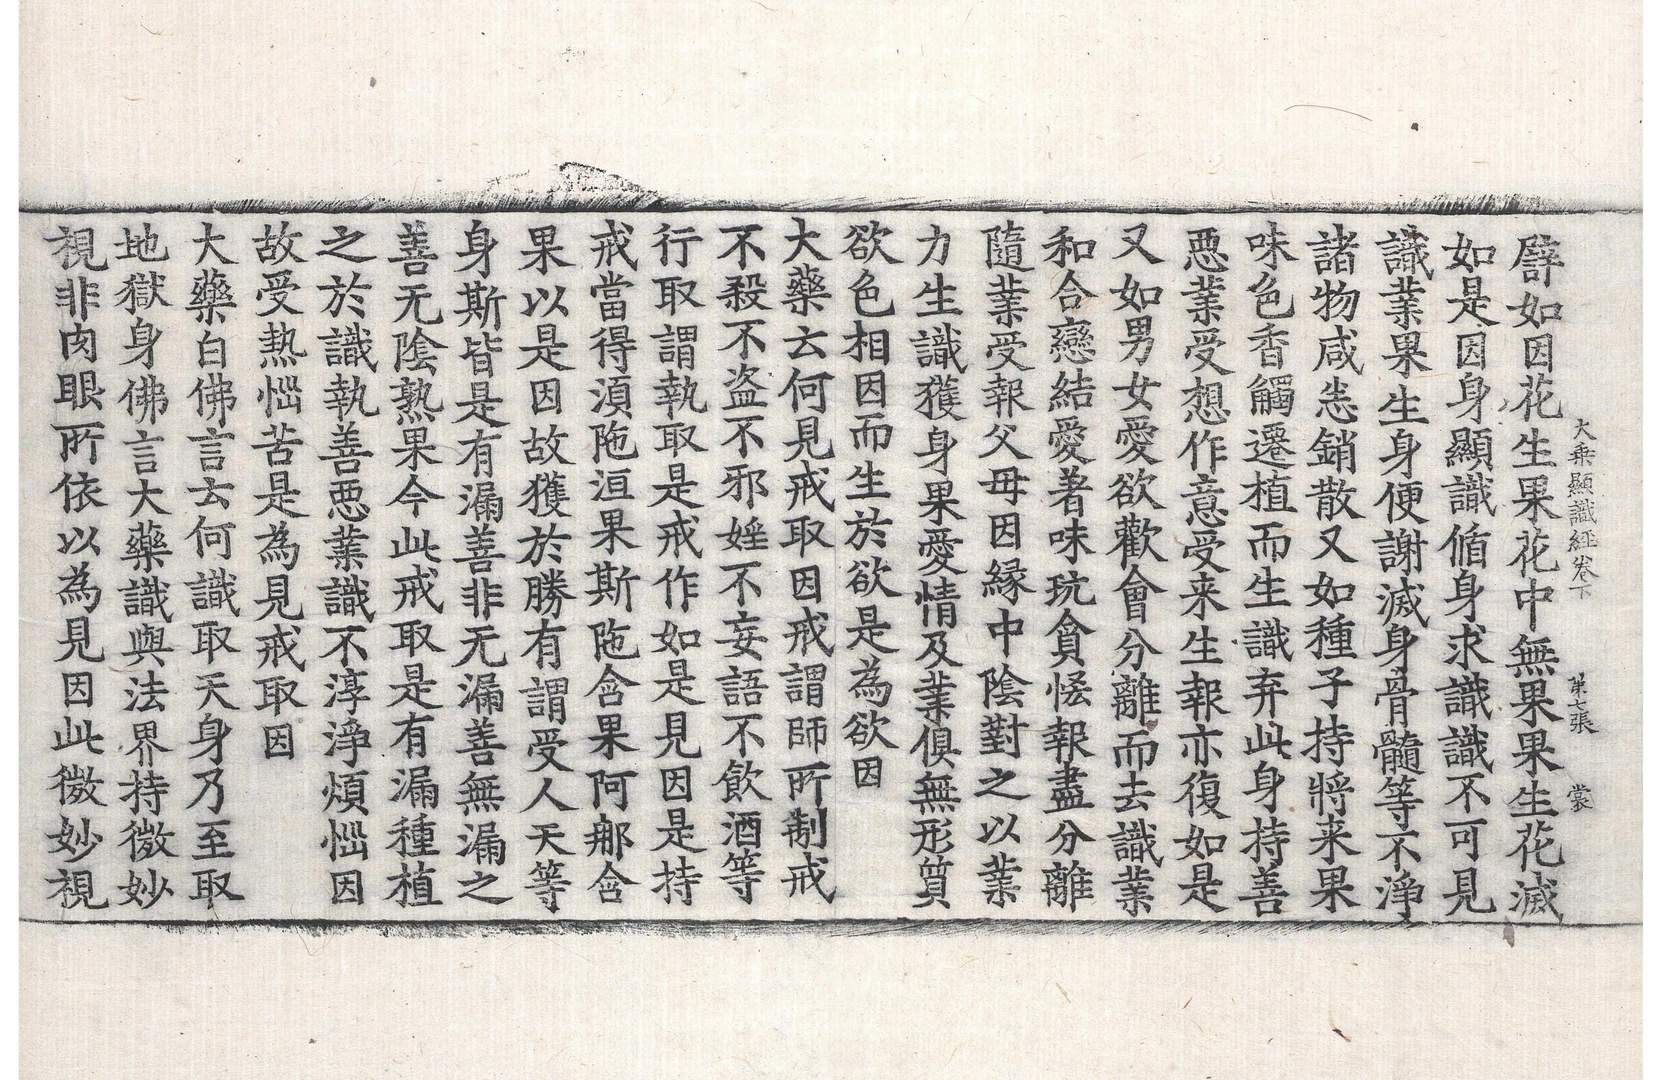 大乗顯識経卷下　第七張　裳
譬如因花生果花中無果果生花滅
如是因身顯識循身求識識不可見
識業果生身便謝滅身骨髓等不淨
諸物咸悉銷散又如種子持將来果
味色香觸遷植而生識弃此身持善
惡業受想作意受来生報亦復如是
又如男女愛欲歡會分離而去識業
和合戀結愛著味玩貪悋報盡分離
隨業受報父母因縁中陰對之以業
力生識獲身果愛情及業俱無形質
欲色相因而生於欲是為欲因
大藥云何見戒取因戒謂師所制戒
不殺不盗不邪婬不妄語不飲酒等
行取謂執取是戒作如是見因是持
戒當得湏陁洹果斯陁含果阿那含
果以是因故獲於勝有謂受人天等
身斯皆是有漏善非无漏善無漏之
善无陰熟果今此戒取是有漏種植
之於識執善惡業識不淳淨煩惱因
故受熱惱苦是為見戒取因
大藥白佛言云何識取天身乃至取
地獄身佛言大藥識與法界持微妙
視非肉眼所依以為見因此微妙視